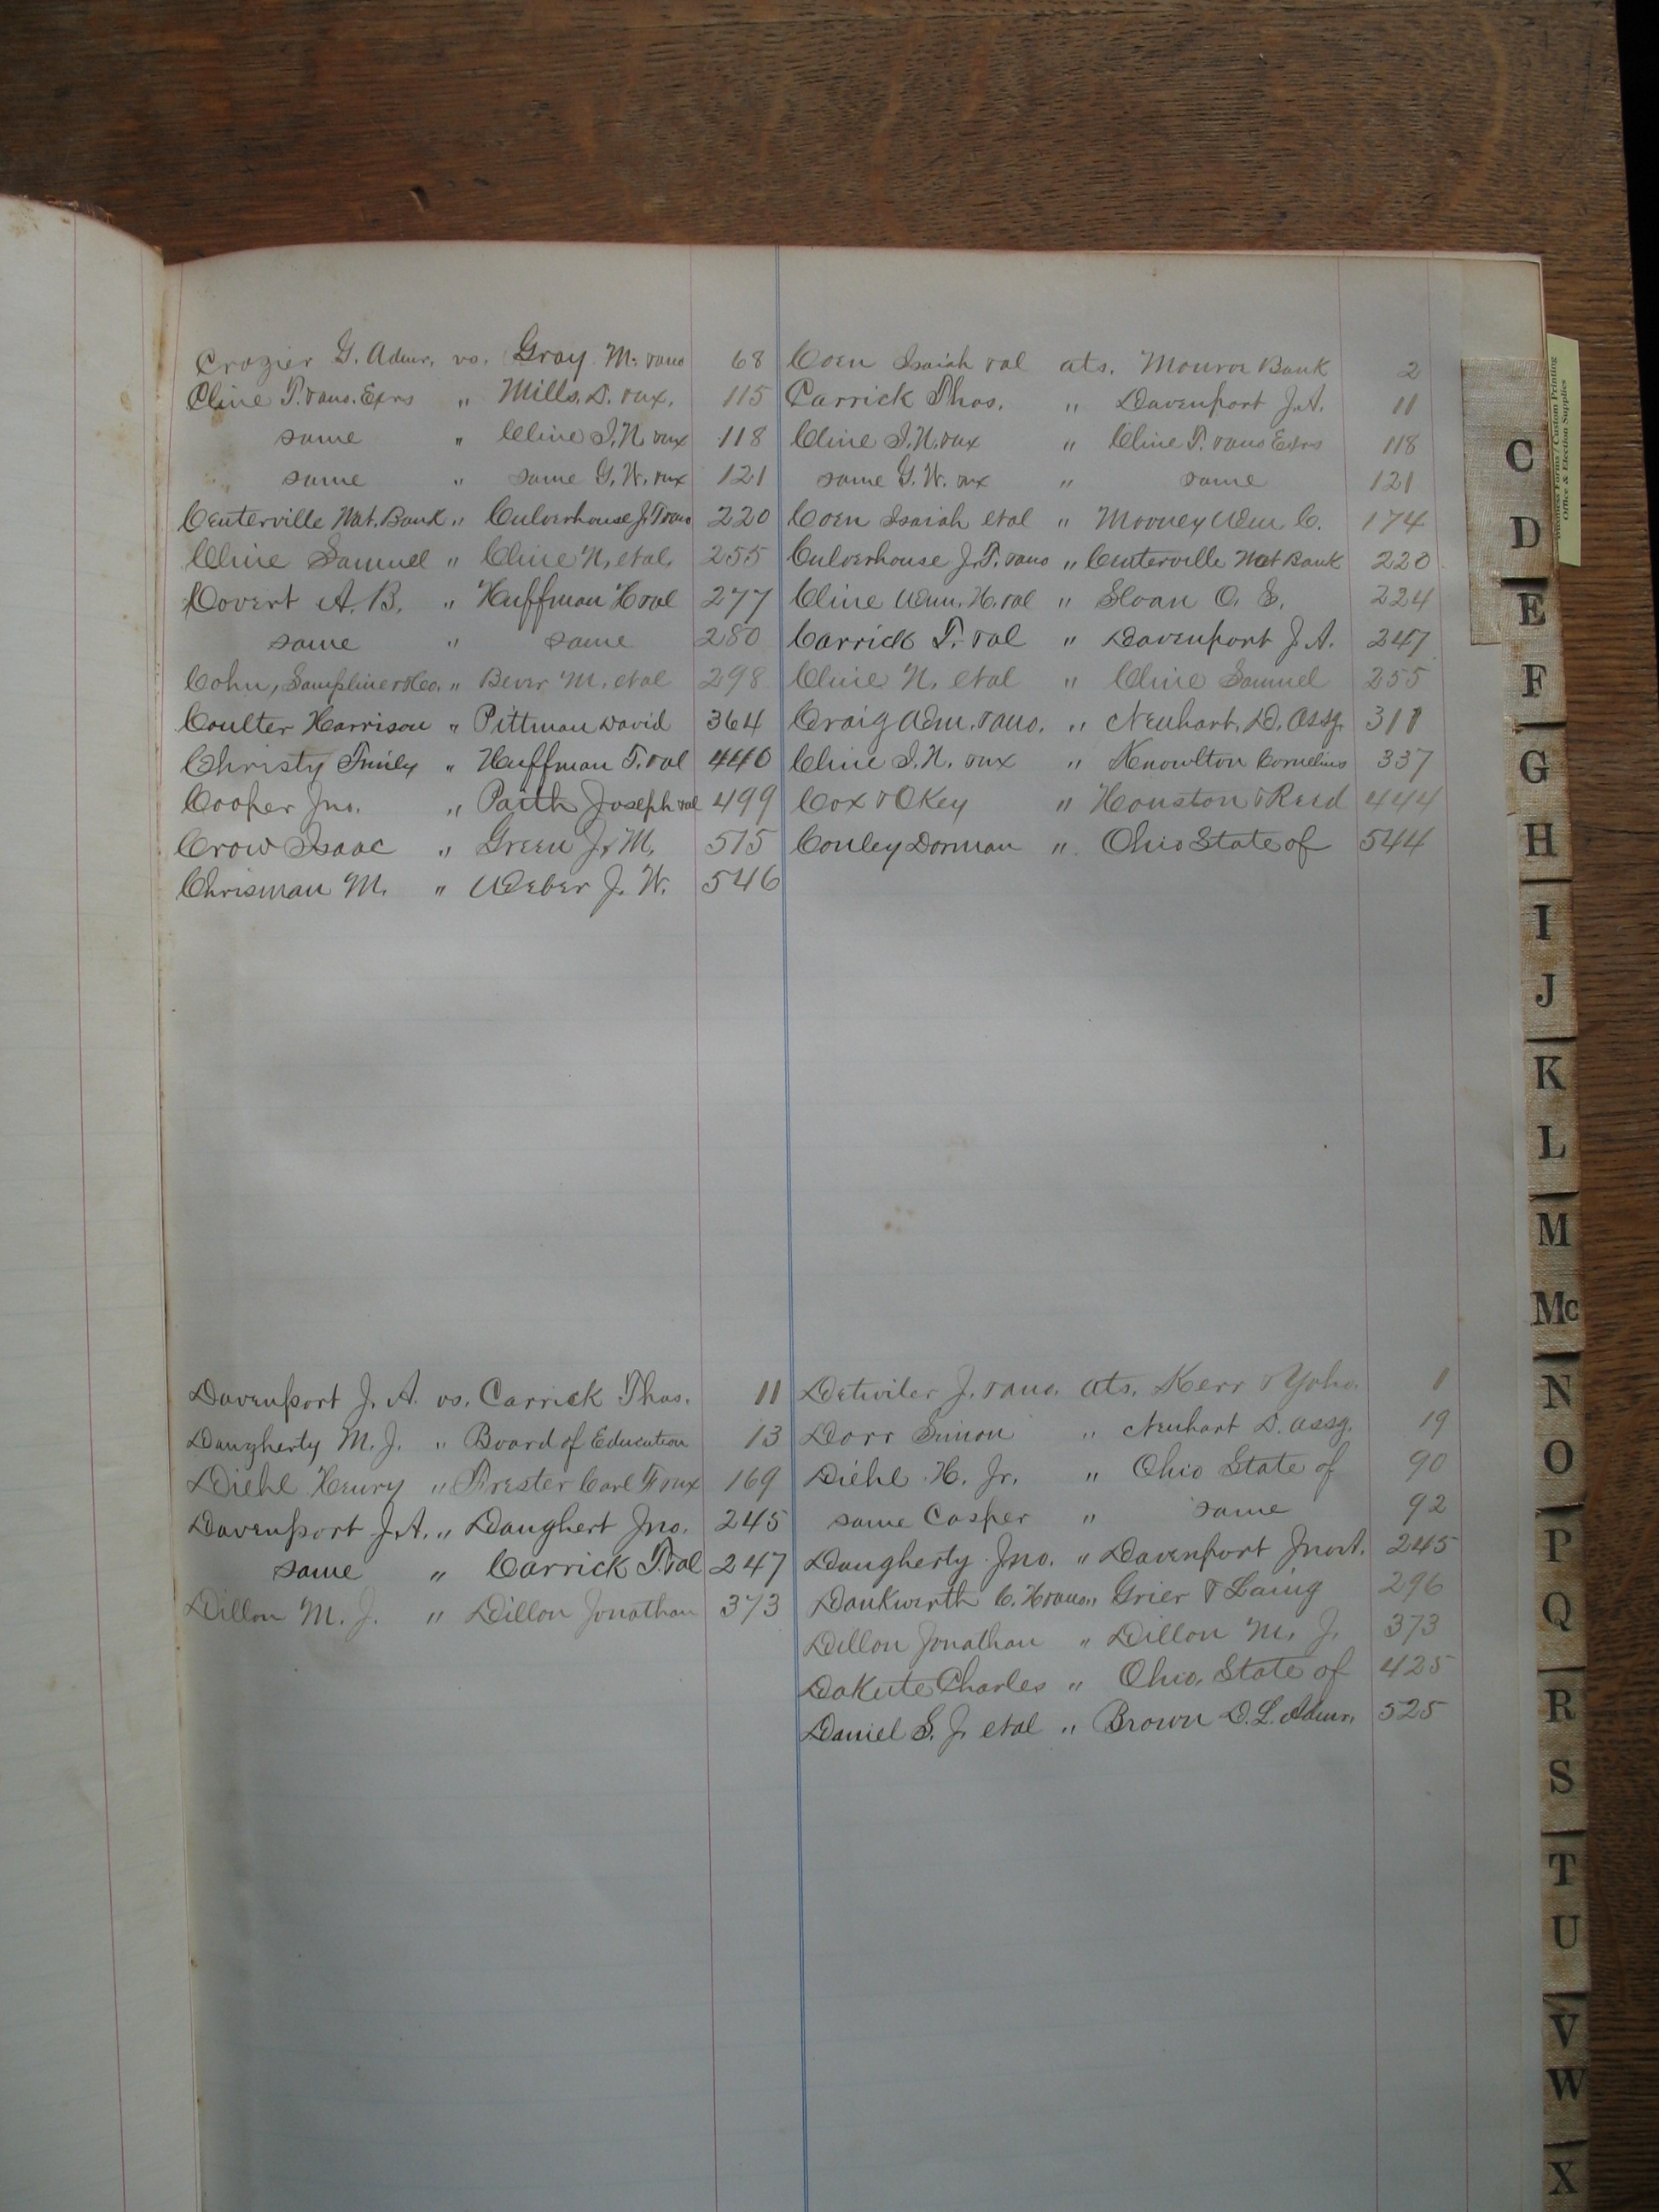 Crozier G. Admr. vs. Gray M. & ano 68
Cline T. & ano. Exrs " Mills D. & ux. 115
same " Cline I. N. & ux 118
same " same G. W. & ux 121
Centerville Nat. Bank " Culverhouse J. T & ano 220
Cline Samuel " Cline N. et al. 255
Covert A. B. " Huffman H & al 277
same " same 280
Cohn, Sampliner & Co. " Bever M. et al 298
Coulter Harrison " Pittman David 364
Christy " Huffman T. & al 440
Cooper Jno. " Paith Joseph & al 499
Crow Isaac " Green J. M. 515
Chrisman M. " Weber J. W. 546
Coen Isaiah & al ats. Monroe Bank 2
Carrick Thos. " Davenport J. A. 11
Cline I. N. & ux " Cline T. & ano Exrs 118
same G. W. & ux " same 121
Coen Isaiah et al " Mooney Wm. C. 174
Culverhouse J. T. & ano " Centerville Nat Bank 220
Cline Wm. H. & al " Sloan O. S. 224
Carrick T. & al " Davenport J. A. 247
Cline N. et al " Cline Samuel 255
Craig Wm. & ano. " Neuhart, D. Assg. 311
Cline I. N. & ux " Knowlton Cornelius 337
Cox & OKey " Houston & Reed 444
Conley Dorman " Ohio State of 544
Davenport J. A. vs. Carrick Thos. 11
Daugherty M. J. " Board of Education 13
Diehl Henry " Carl F & ux 169
Davenport J. A. " Daughert Jno. 245
same " Carrick T. & al 247
Dillon M. J. " Dillon Jonathan 373
Detwiler J. & ano. ats. Kerr & Yoho. 1
Dorr Simon " Neuhart D. Assg. 19
Diehl H. Jr. " Ohio State of 90
same Casper " same 92
Daugherty Jno. " Davenport Jno A. 245
Dankwerth C. H & ano " Grier & Laing 296
Dillon Jonathan " Dillon M. J. 373
DaKute Charles " Ohio, State of 425
Daniel S. J. et al " Brown D. L. Admr. 525
Business Forms / Custom Printing
Office & Election Supplies
C
D
E
F
G
H
I
J
K
L
M
Mc
N
O
P
Q
R
S
T
U
V
W
X